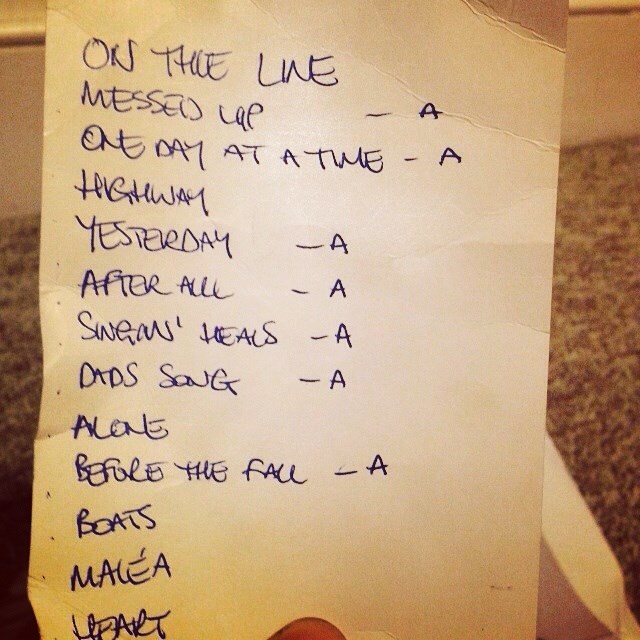 ON THE LINE
MESSED UP - A
ONE DAY AT A TIME - A
HIGHWAY
YESTERDAY - A
AFTER ALL - A
SINGIN' HEALS - A
DADS SONG - A
ALONE
BEFORE THE FALL - A
BOATS
MALÉA
HEART